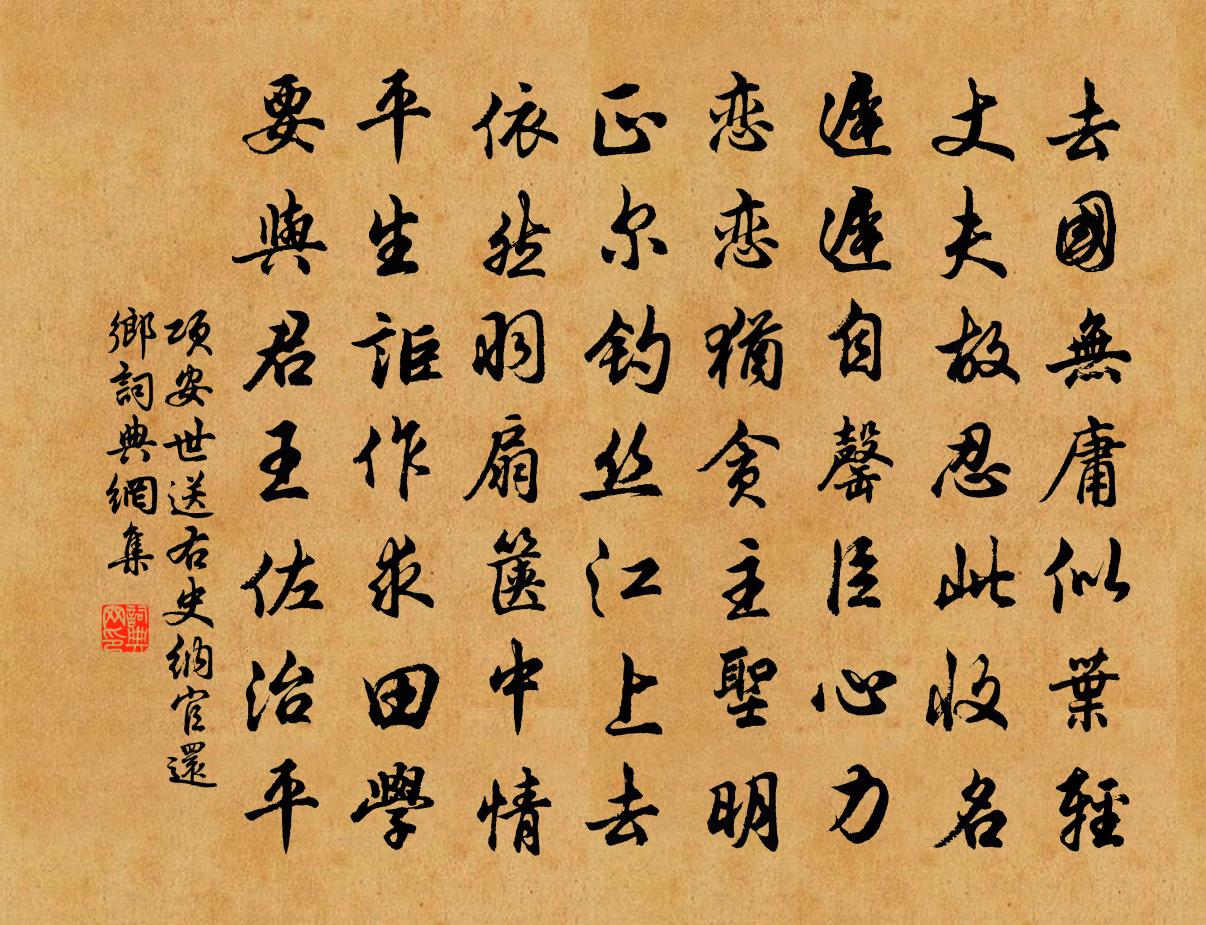 去國無庸似葉輕
丈夫故忍此收名
遲遲自罄臣心力
恋恋猶贪主聖明
正尔钓丝江上去
依然羽扇箧中情
平生詎作求田學
要與君王佐治平
项安世送右史纳官還
鄉詞典網集
詞典
网印